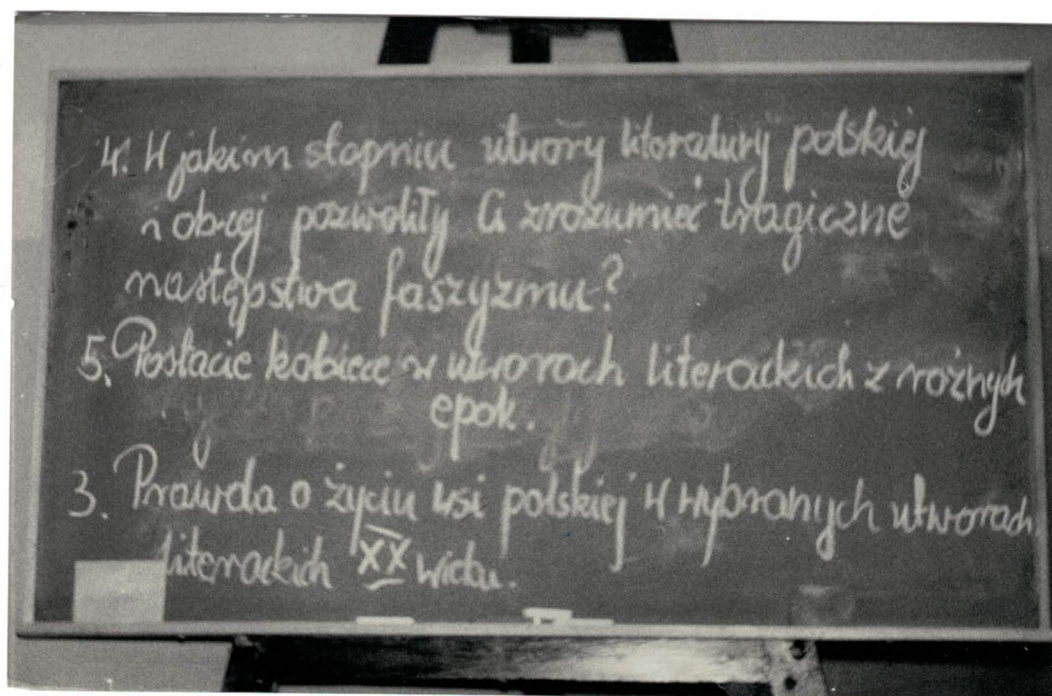 4. W jakim stopniu utwory literatury polskiej
i obcej pozwoliły Ci zrozumieć tragiczne
następstwa faszyzmu?
5. Postacie kobiece w utworach literackich z różnych
epok.
3. Prawda o życiu wsi polskiej w wybranych utworach
literackich XX wieku.